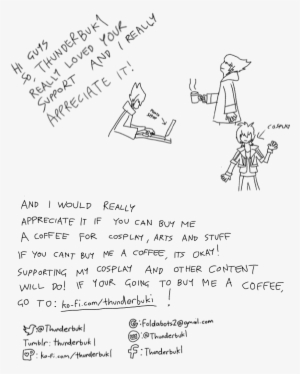 HI GUYS
SO, THUNDERBUKI
REALLY LOVED YOUR
SUPPORT AND I REALLY
APPRECIATE IT!
COSPLAY
AND I WOULD REALLY
APPRECIATE IT IF YOU CAN BUY ME
A COFFEE FOR COSPLAY, ARTS AND STUFF
IF YOU CANT BUY ME A COFFEE, ITS OKAY!
SUPPORTING MY COSPLAY AND OTHER CONTENT
WILL DO! IF YOUR GOING TO BUY ME A COFFEE,
GO TO: ko-fi.com/thunderbuki !
@Thunderbuki
Tumblr: thunderbuki
: ko-fi.com/thunderbuki
:Foldabots2@gmail.com
:@Thunderbuki
:Thunderbuki